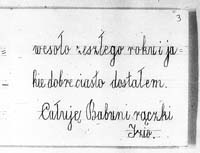 3
wesoło zeszłego roku i ja
kie dobre ciasto dostałem.
Całuję Babuni rączki